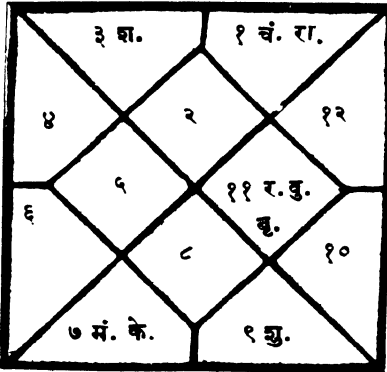 ३ श. १ चं. रा.
४ २ १२
५ ११ र. वु.
६ वृ.
८ १०
७ मं. के. ९ शु.